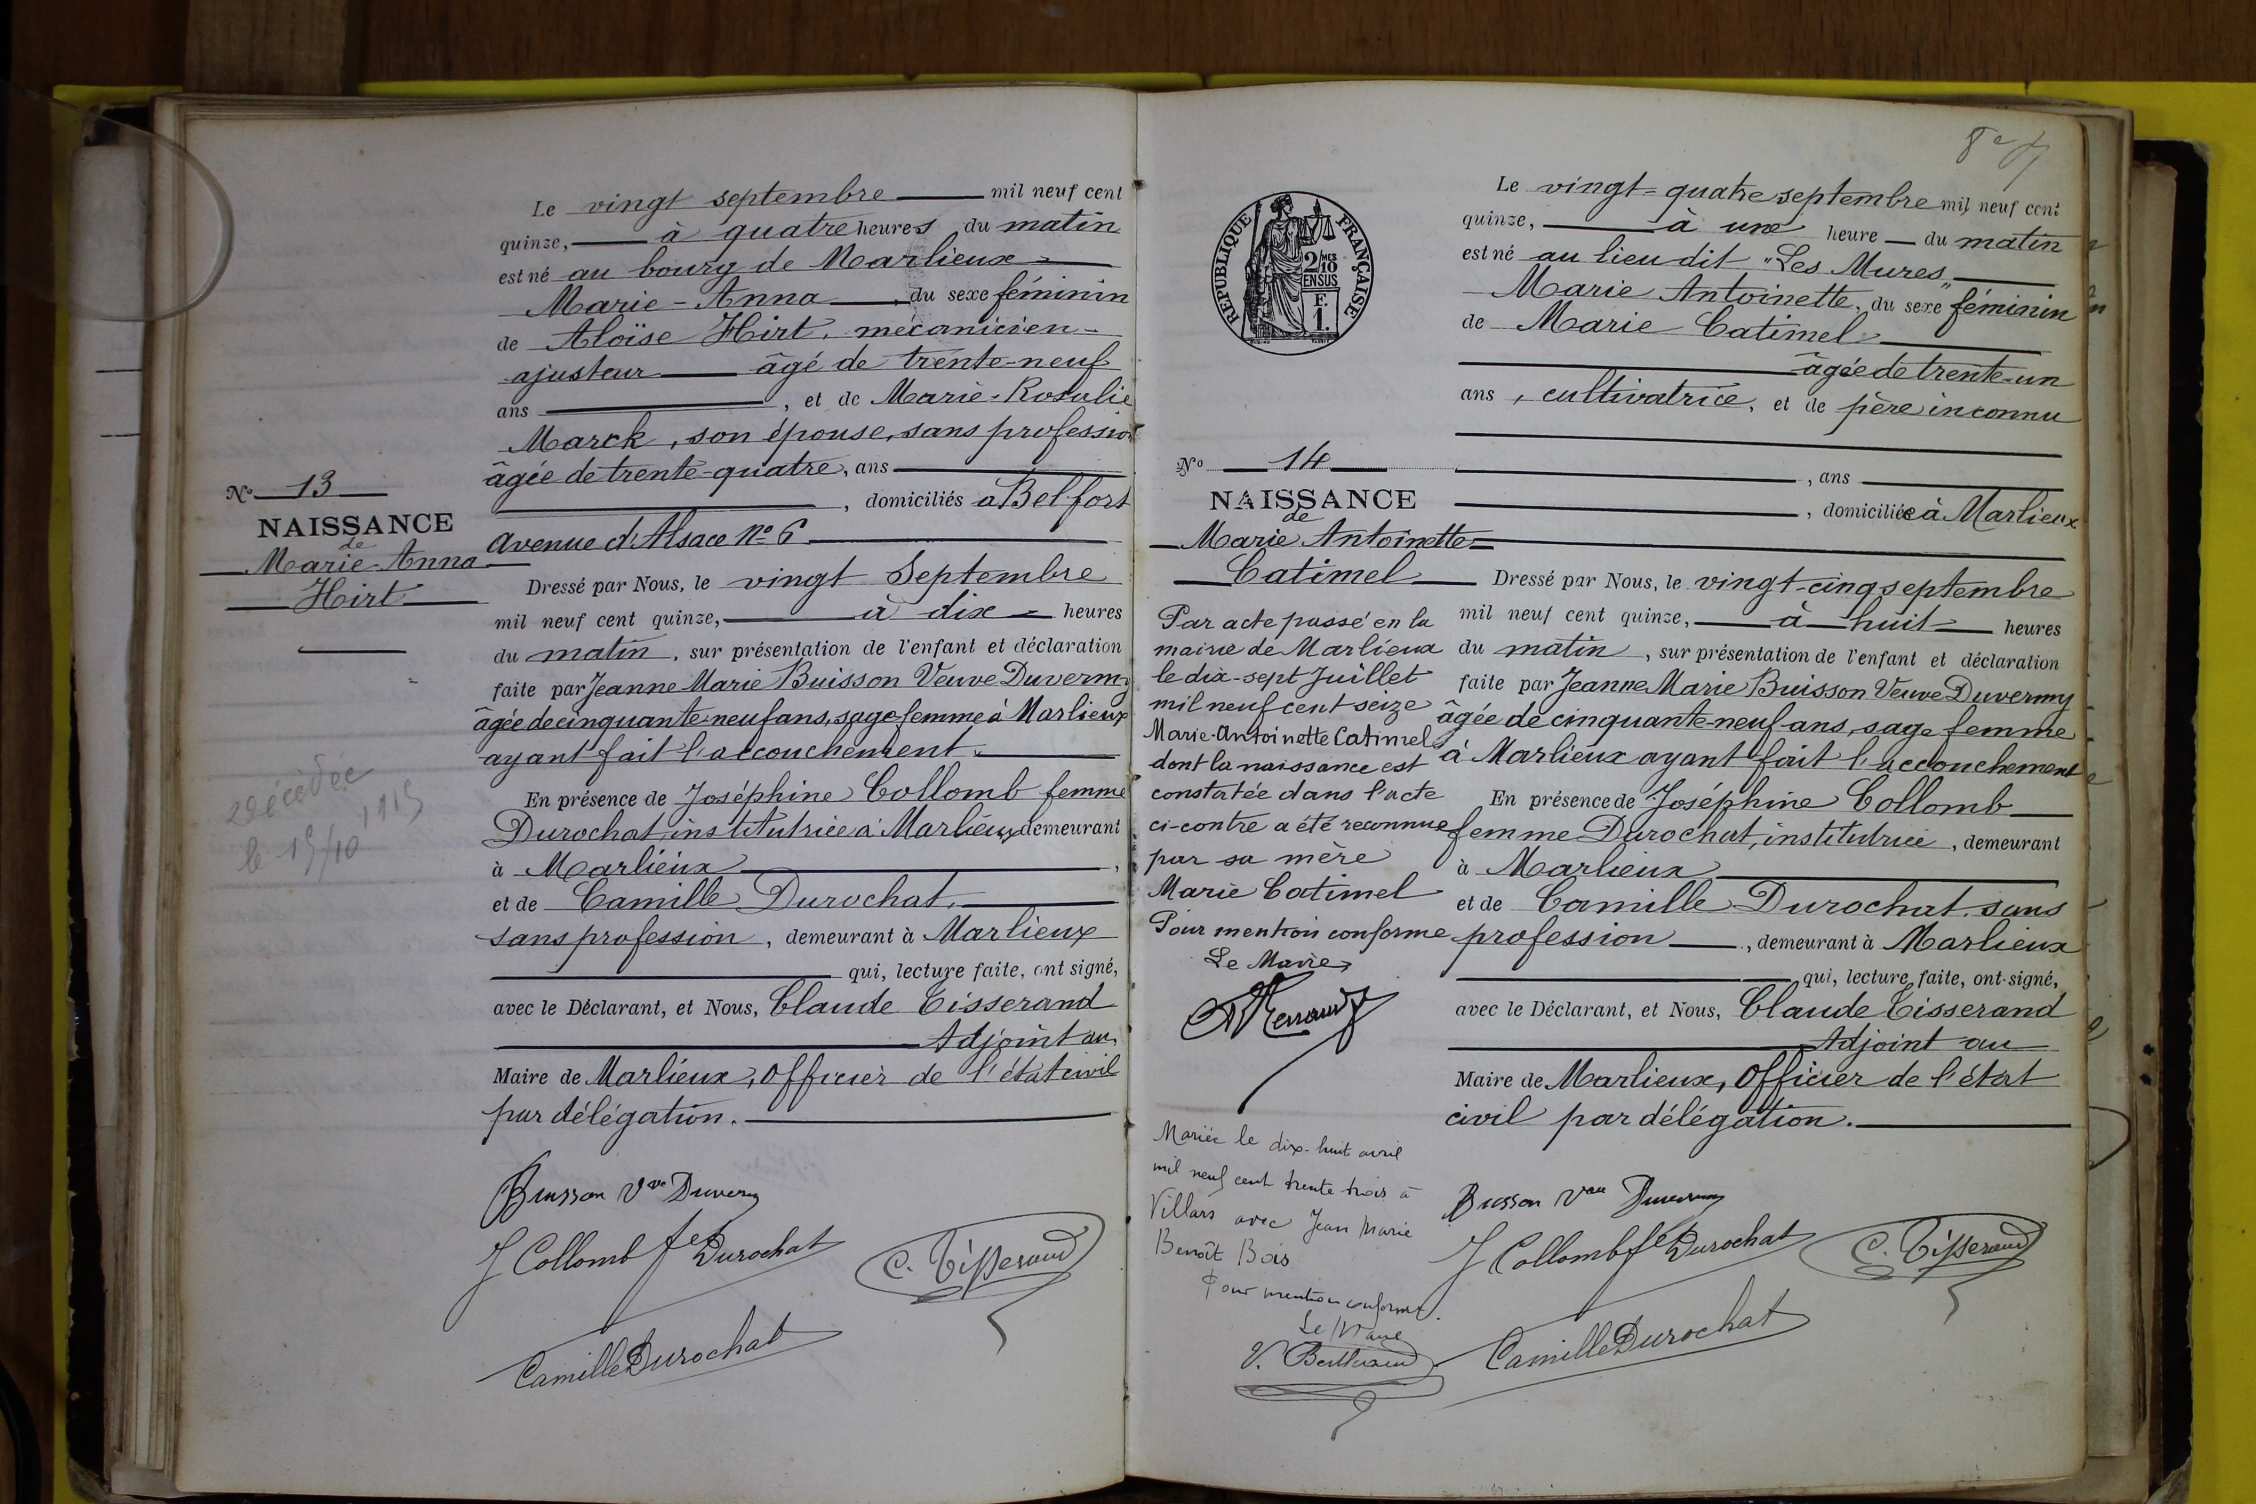 Le vingt septembre mil neuf cent
quinze, à quatre heures du matin
est né au bourg de Marlieux
Marie-Anna, du sexe féminin
de Aloïse Hirt, mécanicien-
ajusteur âgé de trente-neuf
ans, et de Marie-Rosalie
Marck, son épouse, sans profession
âgée de trente-quatre, ans
, domiciliés à Belfort
avenue d'Alsace No 6
No 13
NAISSANCE
de
Marie-Anna
Hirt
Décédée
le 15/10 1915
Dressé par Nous, le vingt Septembre
mil neuf cent quinze, à dix heures
du matin, sur présentation de l'enfant et déclaration
faite par Jeanne Marie Buisson Veuve Duverny
âgée de cinquante-neuf ans, sage-femme à Marlieux
ayant fait l'accouchement.
En présence de Joséphine Collomb femme
Durochat, institutrice à Marlieux, demeurant
à Marlieux,
et de Camille Durochat,
sans profession, demeurant à Marlieux
qui, lecture faite, ont signé,
avec le Déclarant, et Nous, Claude Tisserand
Adjoint au
Maire de Marlieux, Officier de l'état civil
par délégation.
Buisson Vve Duverny
J Collomb fe Durochat
C. Tisserand
Camille Durochat
8e
REPUBLIQUE FRANÇAISE
2/10 MES
EN SUS
F.
1.
Le vingt-quatre septembre mil neuf cent
quinze, à une heure du matin
est né au lieu dit "Les Mures"
Marie Antoinette, du sexe féminin
de Marie Catimel
âgée de trente-un
ans, cultivatrice, et de père inconnu
, ans
, domiciliée à Marlieux
No 14
NAISSANCE
de
Marie Antoinette
Catimel
Par acte passé en la
mairie de Marlieux
le dix-sept Juillet
mil neuf cent seize
Marie-Antoinette Catimel
dont la naissance est
constatée dans l'acte
ci-contre a été reconnue
par sa mère
Marie Catimel
Pour mention conforme
Le Maire,
Mariée le dix-huit avril
mil neuf cent trente trois à
Villars avec Jean Marie
Benoît Bois
Pour mention conforme.
Le Maire
Dressé par Nous, le vingt-cinq septembre
mil neuf cent quinze, à huit heures
du matin, sur présentation de l'enfant et déclaration
faite par Jeanne Marie Buisson Veuve Duverny
âgée de cinquante-neuf ans, sage femme
à Marlieux ayant fait l'accouchement
En présence de Joséphine Collomb
femme Durochat, institutrice, demeurant
à Marlieux
et de Camille Durochat, sans
profession, demeurant à Marlieux
qui, lecture faite, ont signé,
avec le Déclarant, et Nous, Claude Tisserand
Adjoint au
Maire de Marlieux, Officier de l'état
civil par délégation.
Buisson Vve Duverny
J Collomb fe Durochat
C. Tisserand
Camille Durochat